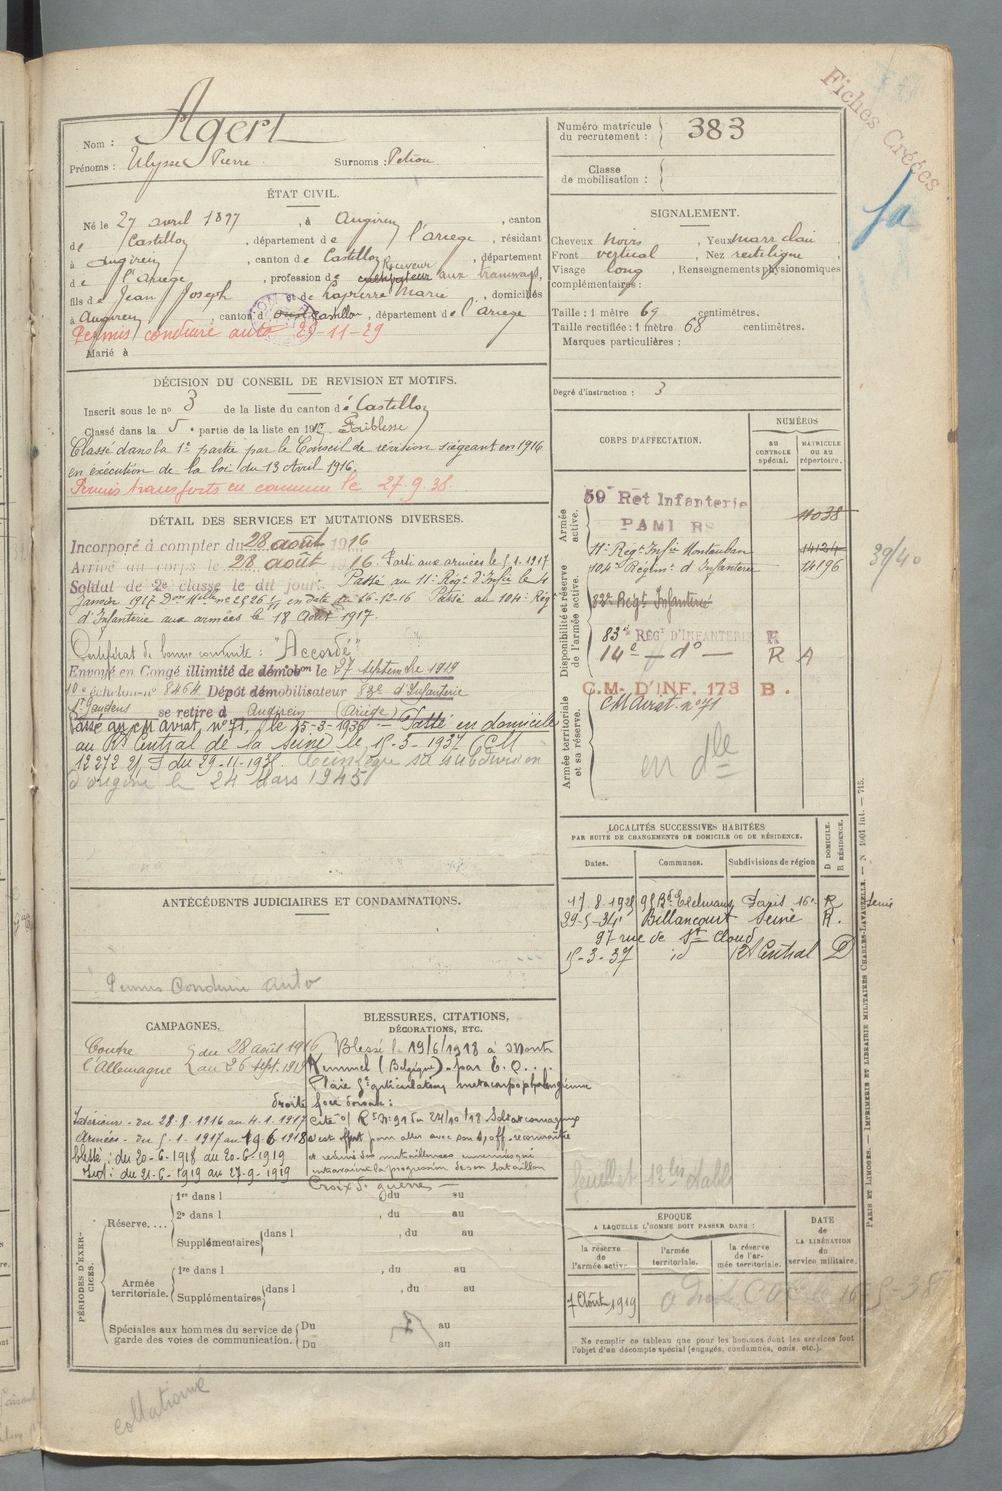 Fiches Créées
Nom : Agert
Prénoms : Ulysse Pierre Surnoms : Petrou
ÉTAT CIVIL.
Né le 27 avril 1897, à Augirein, canton
de Castillon, département de l'ariege, résidant
à Augirein, canton de Castillon, département
de l'Ariège, profession de cultivateur Receveur aux tramways,
fils de Jean Joseph et de Laperre Marie, domiciliés
à Augirein, canton d Castillon, département de l'Ariege
Permis conduire auto 29-11-29
Marié à
DÉCISION DU CONSEIL DE REVISION ET MOTIFS.
Inscrit sous le no 3 de la liste du canton de Castillon
Classé dans la 5e partie de la liste en 1917. Faiblesse
Classé dans la 1e partie par le Conseil de révision siégeant en 1916
en exécution de la loi du 13 Avril 1916.
Permis transports en commun le 27.9.38.
DÉTAIL DES SERVICES ET MUTATIONS DIVERSES.
Incorporé à compter du 28 août 1916
Arrivé au corps le 28 août 1916. Parti aux armées le 5.1.1917
Soldat de 2e classe le dit jour. Passé au 11e Régt d'Infie le 4
Janvier 1917 en date du 26-12-16 Passé au 104e Régt
d'Infanterie aux armées le 18 Août 1917.
Certificat de bonne conduite : "Accordé"
Envoyé en Congé illimité de démobon le 27 septembre 1919
10e échelon no 8464 Dépôt démobilisateur 83e d'Infanterie
St Gaudens se retire à Augirein (Ariège)
Passé au CM Aviat. no 71, le 25-3-1936 — Passé en domicile
au Rt Central de la Seine le 15-3-1937
du 29-11-1938. sa subdivision
d'origine le 24 Mars 1945
ANTÉCÉDENTS JUDICIAIRES ET CONDAMNATIONS.
Permis Conduire auto
CAMPAGNES.
Contre l'Allemagne du 28 août 1916
au 26 sept. 1919
Intérieur - du 28.8.1916 au 4.1.1917
Armées - du 5.1.1917 au 19.6.1918
blessé : du 20-6-1918 au 20-6-1919
Int : du 21-6-1919 au 27-9-1919
BLESSURES, CITATIONS,
DÉCORATIONS, ETC.
Blessé le 19/6/1918 à Mont
Kemmel (Belgique) par E. O.
Plaie articulation metacarpo phalangienne
droite face dorsale :
Cité o/ Rt No 91 du 24/10/18 Soldat courageux
s'est offert pour aller avec son s/off. reconnaître
et réduire des mitrailleuses ennemies qui
entravaient la progression de son bataillon
Croix de guerre —
PÉRIODES D'EXERCICES.
Réserve.... 1re dans l , du au
2e dans l , du au
Supplémentaires dans l , du au
Armée territoriale. 1re dans l , du au
Supplémentaires dans l , du au
Spéciales aux hommes du service de garde des voies de communication. Du au
Du au
collationné
Numéro matricule du recrutement : 383
Classe de mobilisation :
SIGNALEMENT.
Cheveux noirs, Yeux marr clair,
Front vertical, Nez rectiligne
Visage long, Renseignements physionomiques
complémentaires :
Taille : 1 mètre 67 centimètres.
Taille rectifiée : 1 mètre 68 centimètres.
Marques particulières :
Degré d'instruction : 3
CORPS D'AFFECTATION.
NUMÉROS
AU CONTROLE spécial.
MATRICULE OU AU répertoire.
Armée active.
59e Rgt Infanterie 11038
11e Régt Infie Montauban 14124
104e Régimt d'Infanterie 14196
39/40
Disponibilité et réserve de l'armée active.
83e Régt Infanterie
83e RÉGT D'INFANTERIE R
14e — do — R A
Armée territoriale et sa réserve.
C.M. D'INF. 173 B.
CM Aviat. no 71
en dle
LOCALITÉS SUCCESSIVES HABITÉES
PAR SUITE DE CHANGEMENTS DE DOMICILE OU DE RÉSIDENCE.
Dates. Communes. Subdivisions de région D DOMICILE. R RÉSIDENCE.
17.8.1925 98 Bd Exelmans Paris 16e R Seine
29-5-34 Billancourt Seine R.
97 rue de St Cloud
15-3-37 id Rt Central D
ÉPOQUE
A LAQUELLE L'HOMME DOIT PASSER DANS :
la réserve de l'armée active.
l'armée territoriale.
la réserve de l'armée territoriale.
DATE de LA LIBÉRATION du service militaire.
1 Août 1919
Ne remplir ce tableau que pour les hommes dont les services font
l'objet d'un décompte spécial (engagés, condamnés, omis, etc.).
PARIS ET LIMOGES. — IMPRIMERIE ET LIBRAIRIE MILITAIRES CHARLES-LAVAUZELLE. — N 1001 int. — 715.